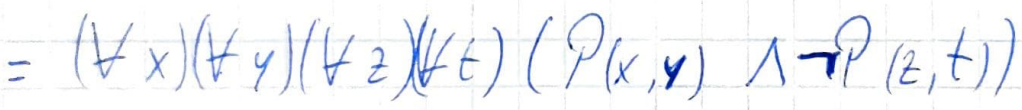 = (∀x)(∀y)(∀z)(∀t) (P(x,y) ∧ ¬P(z,t))